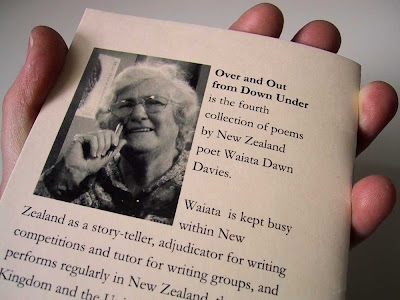 Over and Out
from Down Under
is the fourth
collection of poems
by New Zealand
poet Waiata Dawn
Davies.
Waiata is kept busy
within New
Zealand as a story-teller, adjudicator for writing
competitions and tutor for writing groups, and
performs regularly in New Zealand, the
Kingdom and the